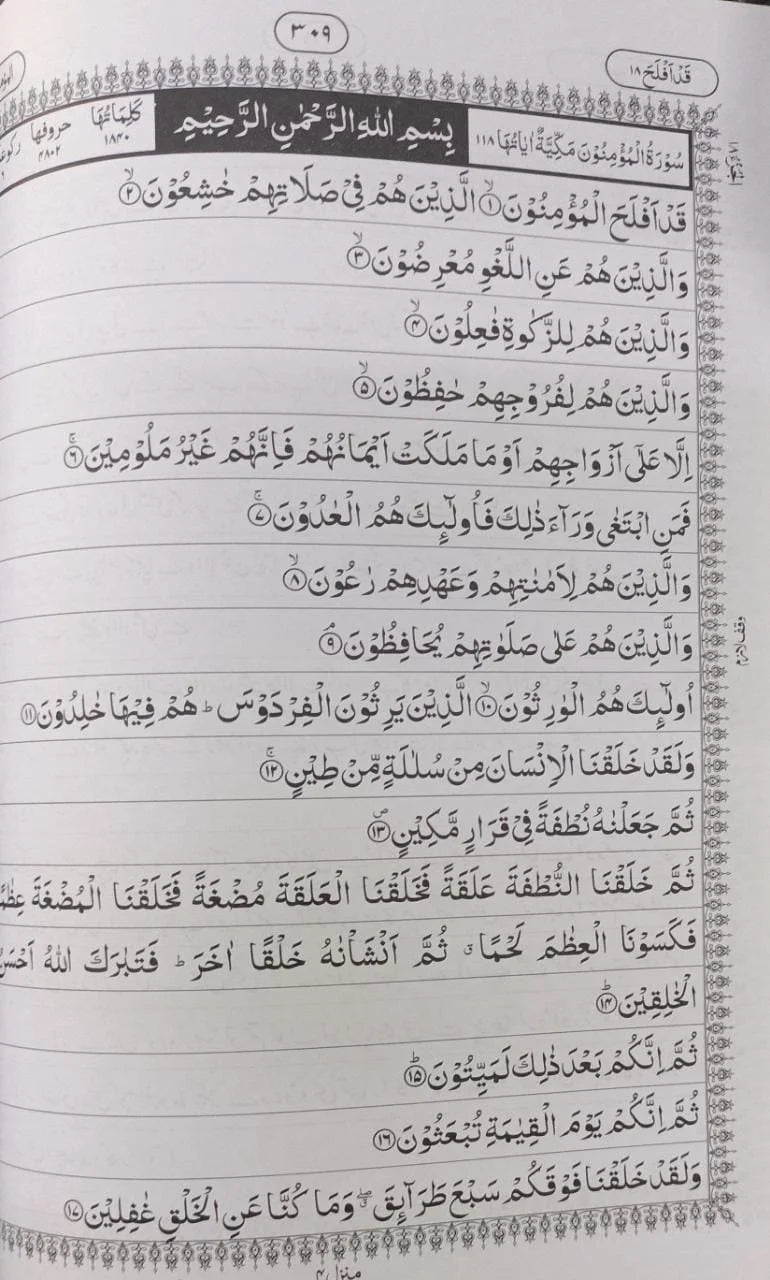 ۳۰۹
قَدْ اَفْلَحَ ۱۸
سُوْرَةُ الْمُؤْمِنُوْنَ مَكِّيَّةٌ اٰيَاتُهَا ۱۱۸ بِسْمِ اللّٰهِ الرَّحْمٰنِ الرَّحِيْمِ كَلِمَاتُهَا ۱۸۴۰ حروفها ۴۸۰۲
قَدْ اَفْلَحَ الْمُؤْمِنُوْنَ ۙ﴿۱﴾ الَّذِيْنَ هُمْ فِيْ صَلَاتِهِمْ خٰشِعُوْنَ ۙ﴿۲﴾
وَالَّذِيْنَ هُمْ عَنِ اللَّغْوِ مُعْرِضُوْنَ ۙ﴿۳﴾
وَالَّذِيْنَ هُمْ لِلزَّكٰوةِ فٰعِلُوْنَ ۙ﴿۴﴾
وَالَّذِيْنَ هُمْ لِفُرُوْجِهِمْ حٰفِظُوْنَ ۙ﴿۵﴾
اِلَّا عَلٰٓى اَزْوَاجِهِمْ اَوْ مَا مَلَكَتْ اَيْمَانُهُمْ فَاِنَّهُمْ غَيْرُ مَلُوْمِيْنَ ۚ﴿۶﴾
فَمَنِ ابْتَغٰى وَرَآءَ ذٰلِكَ فَاُولٰٓئِكَ هُمُ الْعٰدُوْنَ ۚ﴿۷﴾
وَالَّذِيْنَ هُمْ لِاَمٰنٰتِهِمْ وَعَهْدِهِمْ رٰعُوْنَ ۙ﴿۸﴾
وَالَّذِيْنَ هُمْ عَلٰى صَلَوٰتِهِمْ يُحَافِظُوْنَ ۘ﴿۹﴾
وقف لازم
اُولٰٓئِكَ هُمُ الْوٰرِثُوْنَ ۙ﴿۱۰﴾ الَّذِيْنَ يَرِثُوْنَ الْفِرْدَوْسَ ؕ هُمْ فِيْهَا خٰلِدُوْنَ ﴿۱۱﴾
وَلَقَدْ خَلَقْنَا الْاِنْسَانَ مِنْ سُلٰلَةٍ مِّنْ طِيْنٍ ۚ﴿۱۲﴾
ثُمَّ جَعَلْنٰهُ نُطْفَةً فِيْ قَرَارٍ مَّكِيْنٍ ۪﴿۱۳﴾
ثُمَّ خَلَقْنَا النُّطْفَةَ عَلَقَةً فَخَلَقْنَا الْعَلَقَةَ مُضْغَةً فَخَلَقْنَا الْمُضْغَةَ
فَكَسَوْنَا الْعِظٰمَ لَحْمًا ۗ ثُمَّ اَنْشَاْنٰهُ خَلْقًا اٰخَرَ ؕ فَتَبٰرَكَ اللّٰهُ اَحْسَنُ
الْخٰلِقِيْنَ ؕ﴿۱۴﴾
ثُمَّ اِنَّكُمْ بَعْدَ ذٰلِكَ لَمَيِّتُوْنَ ؕ﴿۱۵﴾
ثُمَّ اِنَّكُمْ يَوْمَ الْقِيٰمَةِ تُبْعَثُوْنَ ﴿۱۶﴾
وَلَقَدْ خَلَقْنَا فَوْقَكُمْ سَبْعَ طَرَآئِقَ ۖ وَمَا كُنَّا عَنِ الْخَلْقِ غٰفِلِيْنَ ﴿۱۷﴾
منزل ۴